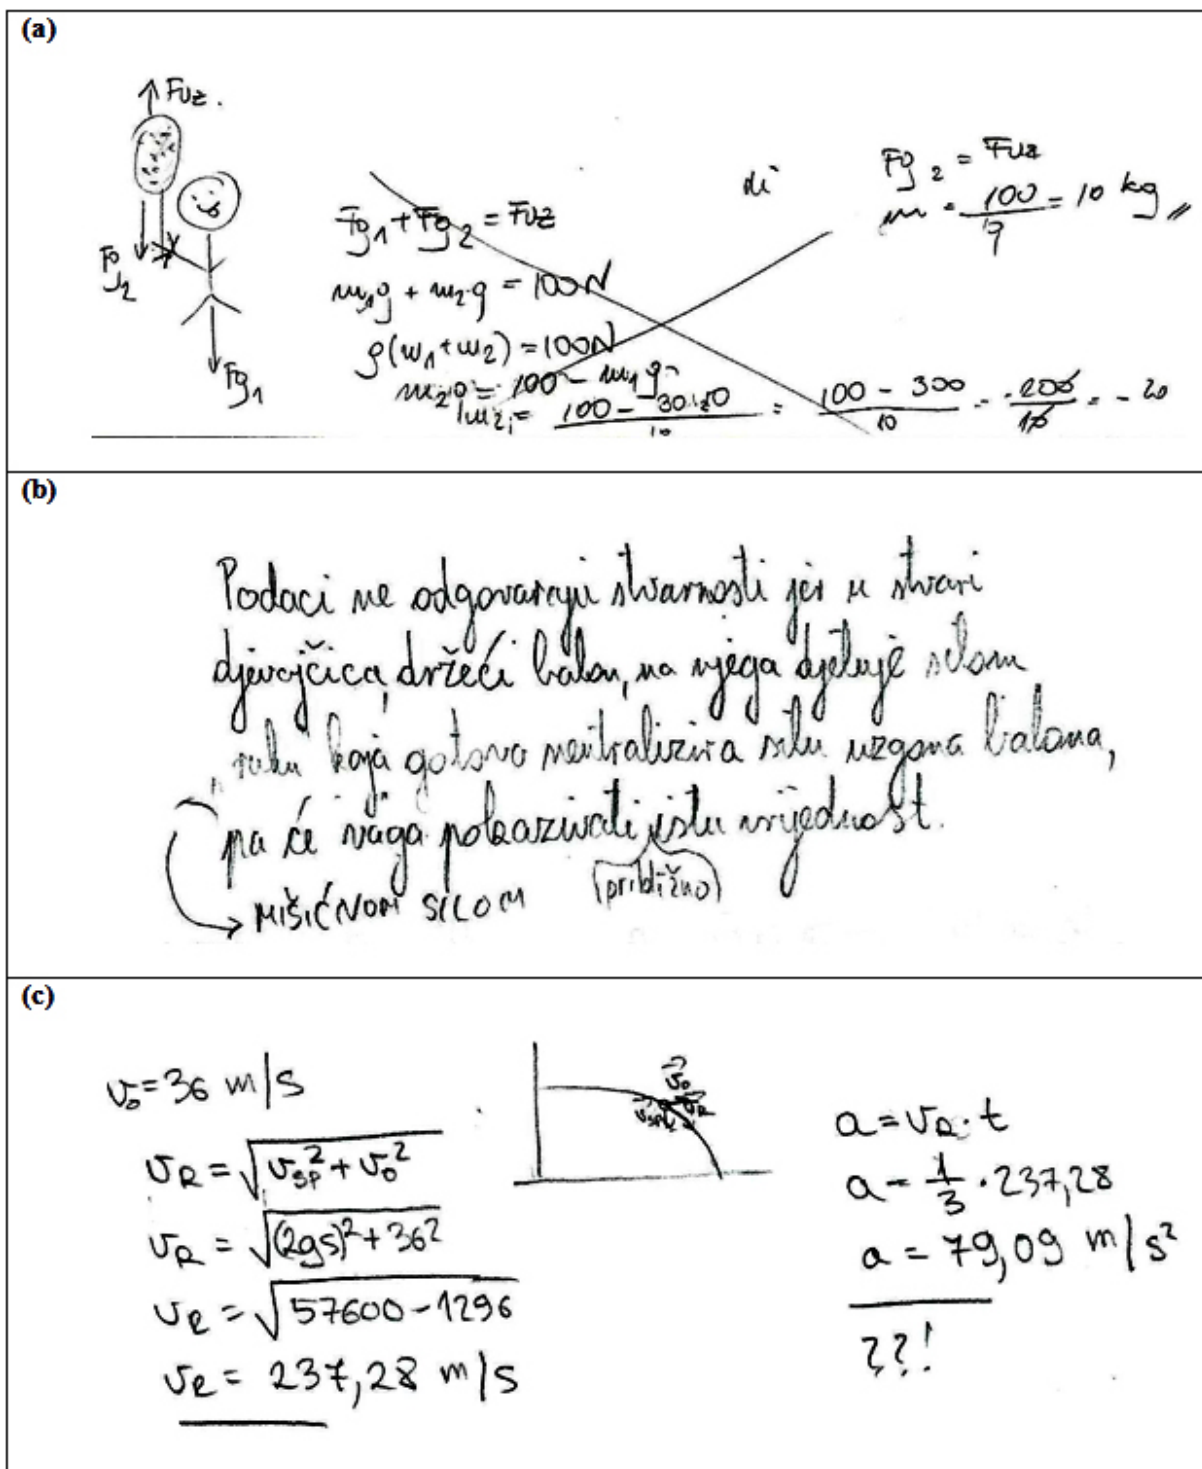 (a)
Fuz.
Fg2
Fg1
Fg1 + Fg2 = Fuz
m1g + m2g = 100N
g(m1 + m2) = 100N
m2g = 100 - m1g
= 100 - 300 / 10 = -200 / 10 = -20
Fg2 = Fuz
m = 100 / g = 10 kg
(b)
Podaci ne odgovaraju stvarnosti jer u stvari
djevojčica, držeći balon, na njega djeluje silom
ruku koja gotovo neutralizira silu uzgona balona,
pa će vaga pokazivati istu vrijednost.
(približno)
MIŠIĆNOM SILOM
(c)
v0 = 36 m/s
vR = √(vsp² + v0²)
vR = √((2gs)² + 36²)
vR = √(57600 - 1296)
vR = 237,28 m/s
v0
vR
vsp
a = vR · t
a = 1/3 · 237,28
a = 79,09 m/s²
??!